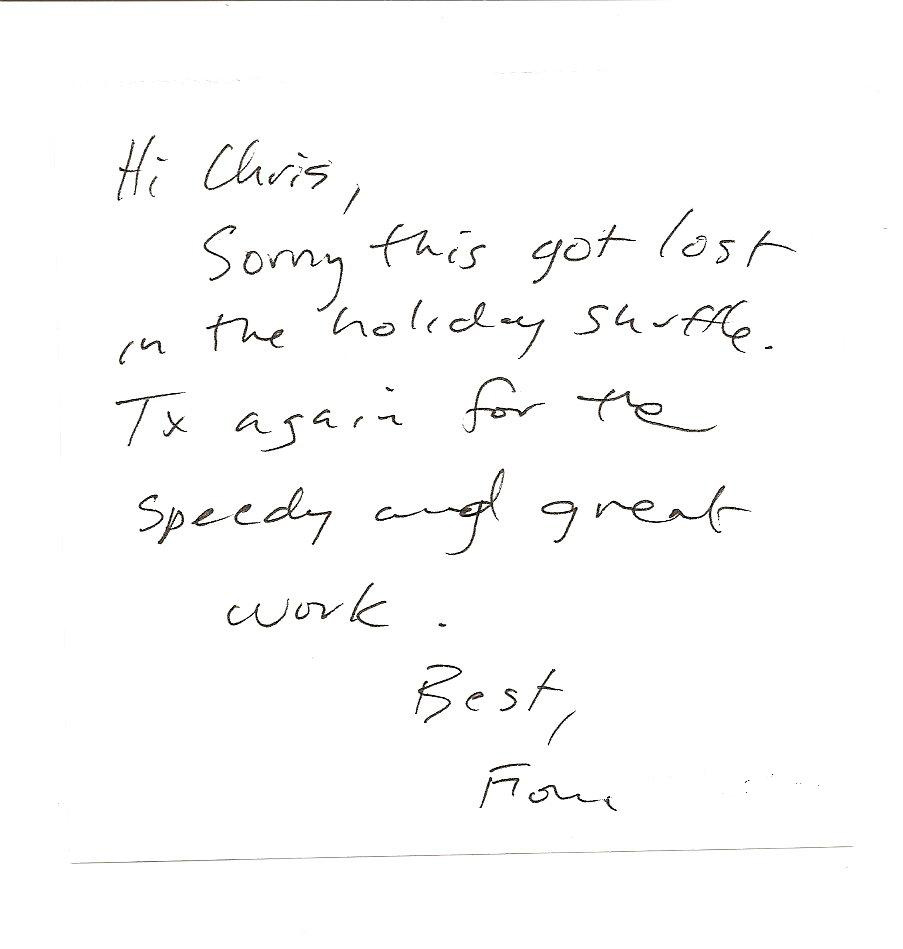 Hi Chris,
Sorry this got lost
in the holiday shuffle.
Tx again for the
speedy and great
work.
Best,
Fiona